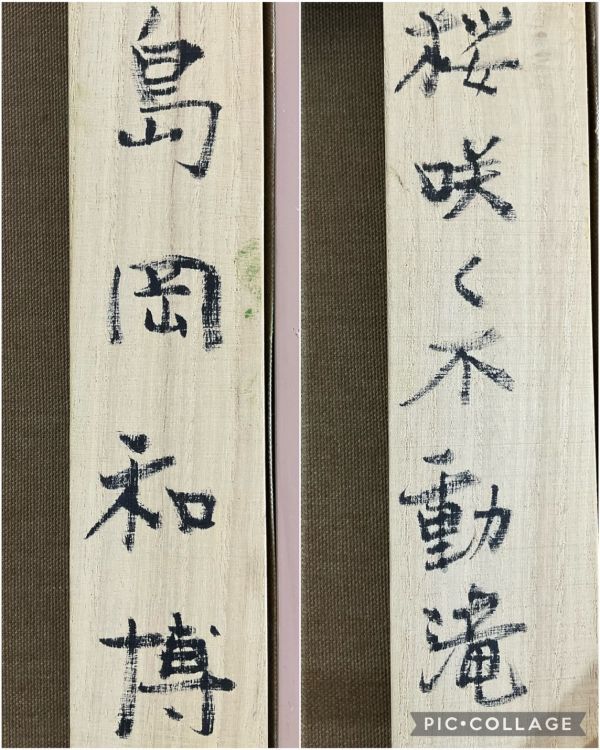 桜咲く不動滝
島岡和博
PIC•COLLAGE